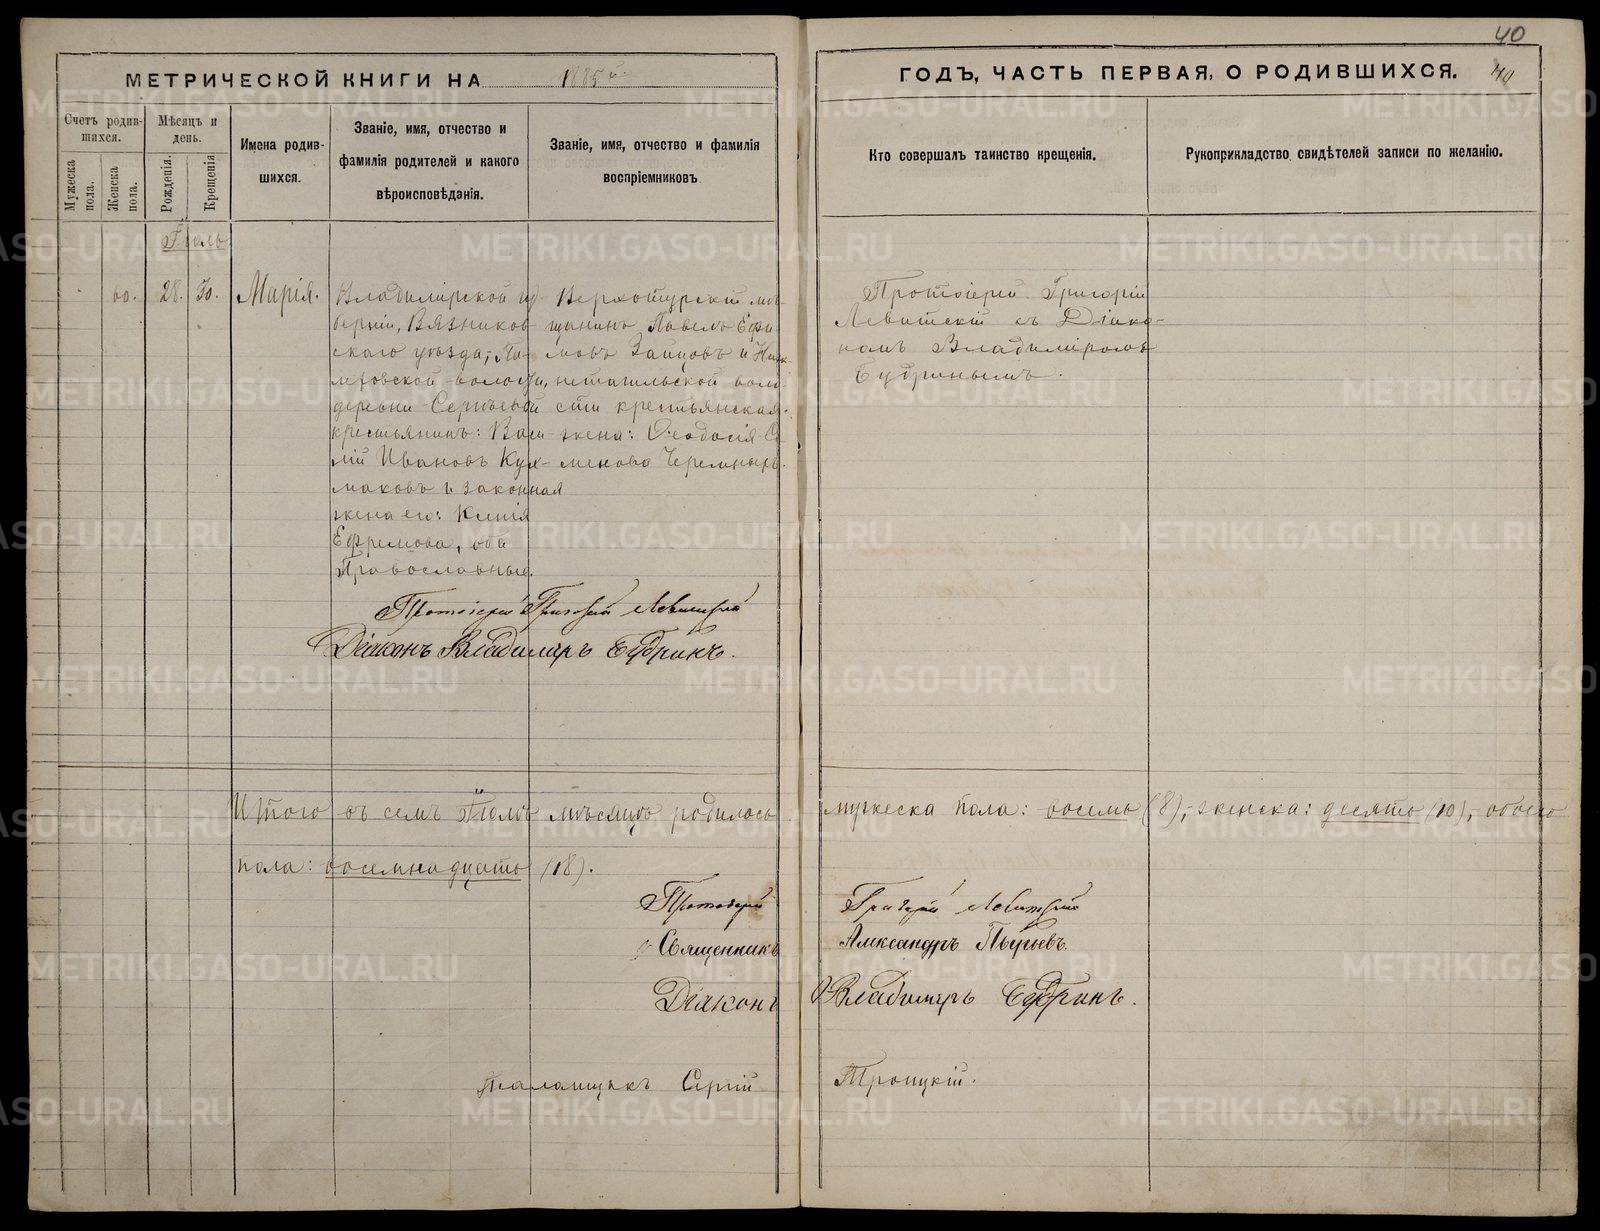 40
МЕТРИЧЕСКОЙ КНИГИ НА 1885 й.
ГОДЪ, ЧАСТЬ ПЕРВАЯ, О РОДИВШИХСЯ. 40
Счетъ родив-
шихся.
Мужеска
пола.
Женска
пола.
Мѣсяцъ и
день.
Рожденія.
Крещенія
Имена родив-
шихся.
Званіе, имя, отчество и
фамилія родителей и какого
вѣроисповѣданія.
Званіе, имя, отчество и фамилія
воспріемниковъ
Кто совершалъ таинство крещенія.
Рукоприкладство свидѣтелей записи по желанію.
Іюль
28. 30. Марія.
Владимірской гу-
берніи, Вязников-
скаго уѣзда,
волости,
деревни Сергѣевой
крестьянинъ: Васи-
лій Ивановъ
и законная
жена его: Ксенія
Ефремова, оба
Православные.
Верхотурскій мѣ-
щанинъ Павелъ Ефи-
мовъ Зайцовъ и Ниж-
нетагильской воло-
сти крестьянская
жена: Ѳеодосія Се-
менова Черемныхъ.
Протоіерей Григорій
Левитскій съ Діако-
номъ Владиміромъ
Будринымъ.
Протоіерей Григорій Левитскій
Діаконъ Владиміръ Будринъ.
Итого въ семъ Іюлѣ мѣсяцѣ родилось мужеска пола: восемь (8), женска: десять (10), обоего
пола: восемнадцать (18).
Протоіерей Григорій Левитскій
Священникъ Александръ Пырьевъ.
Діаконъ Владиміръ Будринъ.
Псаломщикъ Сергій Троицкій.
METRIKI.GASO-URAL.RU